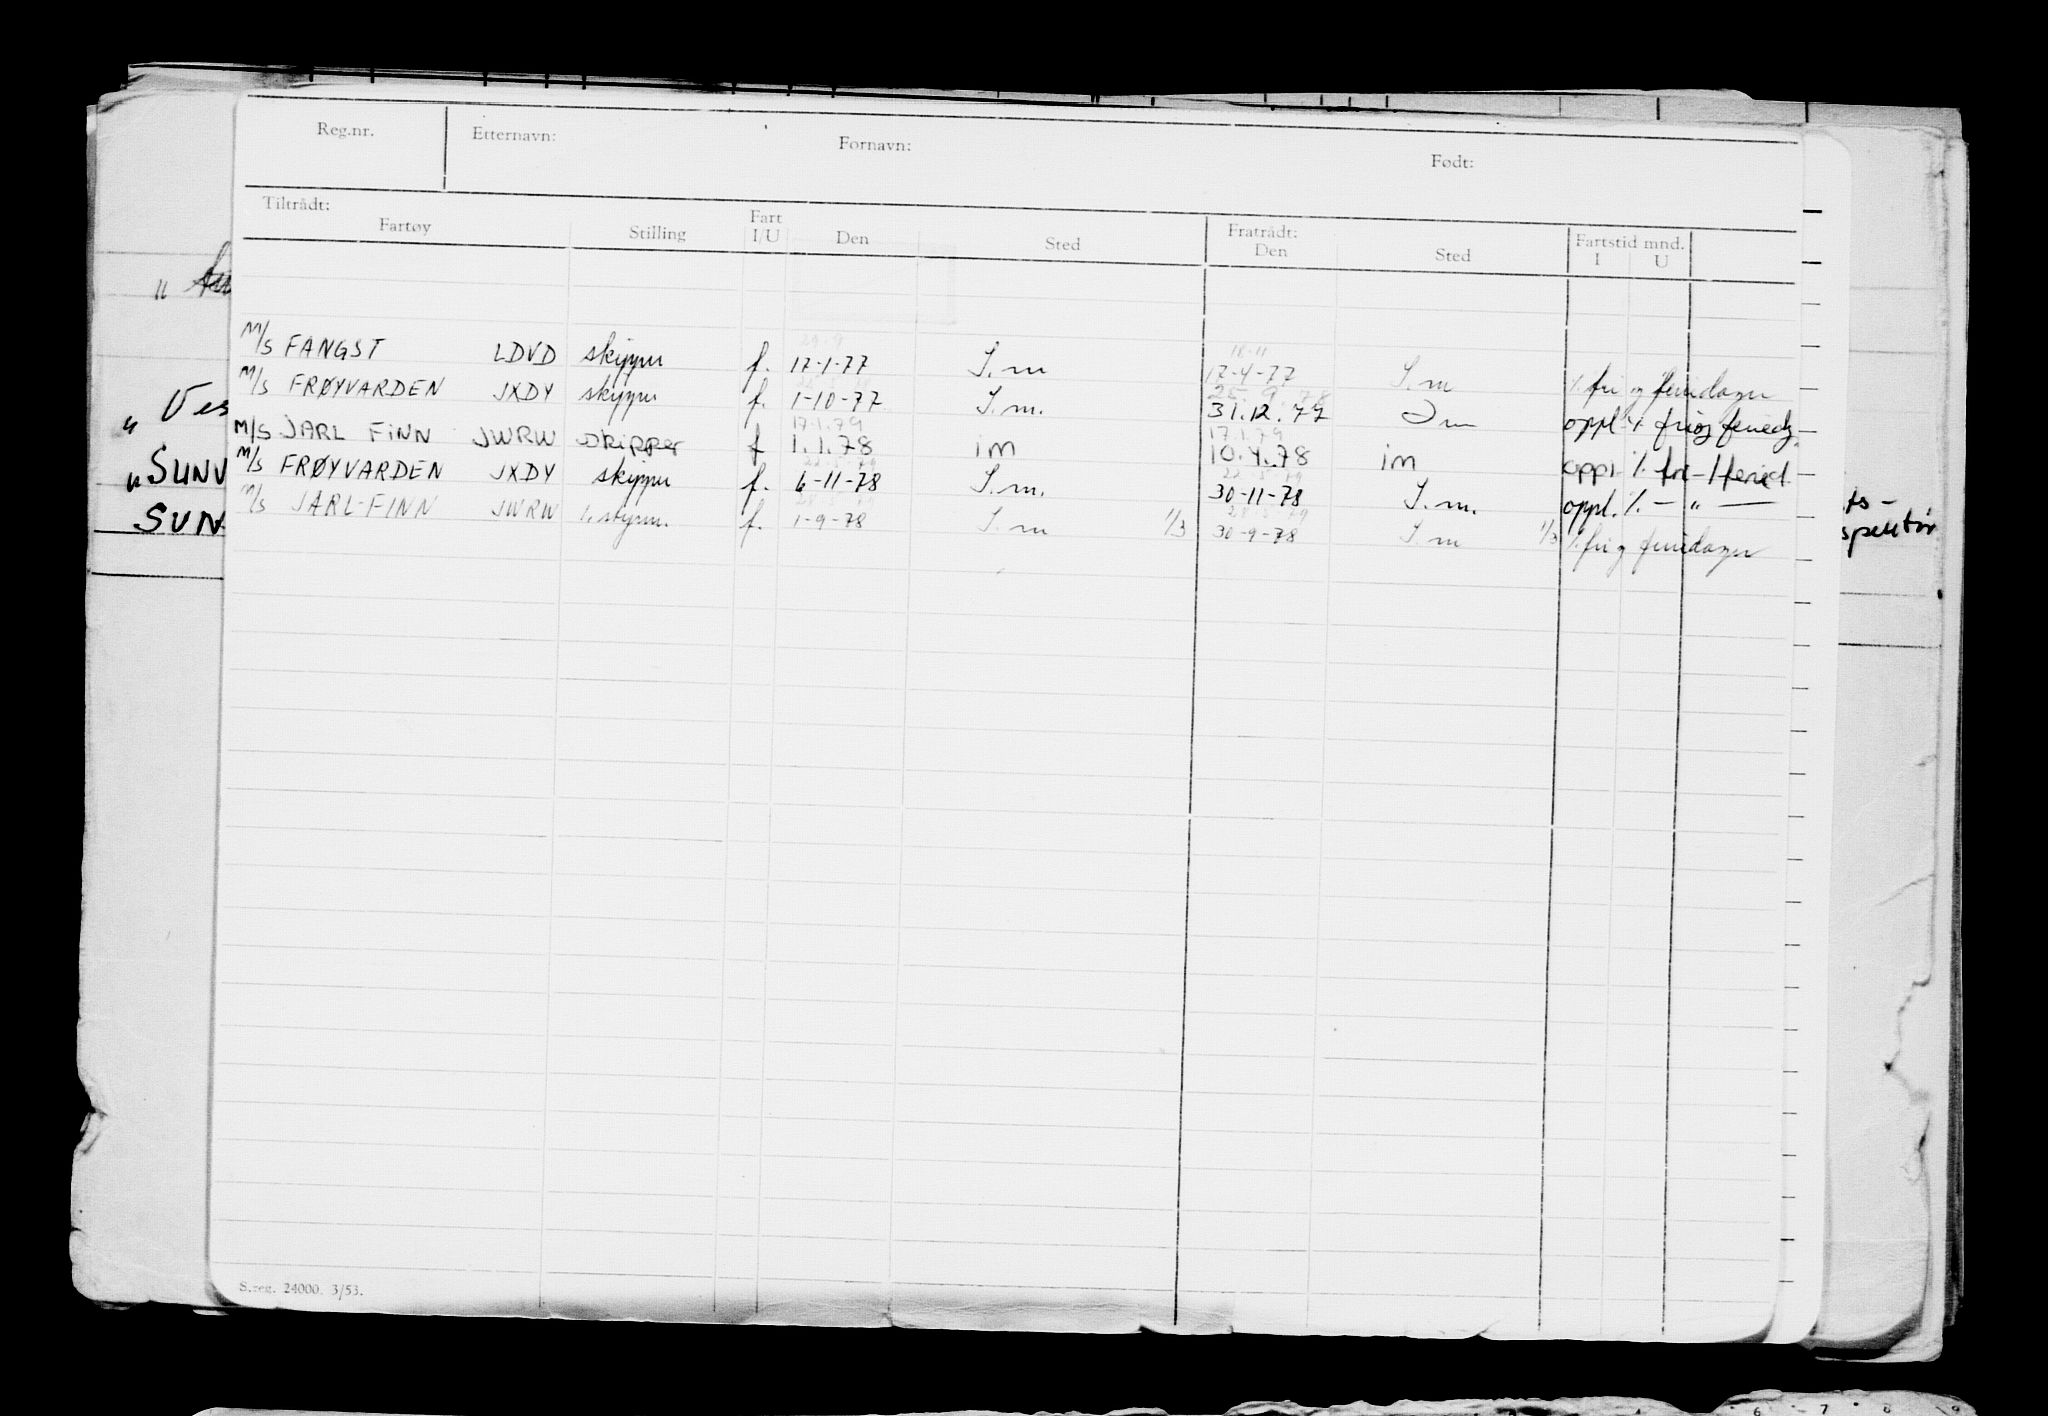 Reg.nr. Etternavn: Fornavn: Født:
Tiltrådt: Fratrådt: Fartstid mnd.
Fartøy Stilling Fart I/U Den Sted Den Sted I U
29.9 18.11
M/S FANGST LDVD skipper f. 17-1-77 I.m 17-4-77 I.m % fri og feriedager
25.9.78
M/S FRØYVARDEN JXDY skipper f. 1-10-77 I.m. 31.12.77 Im oppl. % fri og feriedg.
17.1.79 17.1.79
M/S JARL FINN JWRW skipper f 1.1.78 im 10.4.78 im oppl % fri - / feried.
M/S FRØYVARDEN JXDY skipper f. 6-11-78 I.m. 30-11-78 I.m. oppl. % - " -
M/S JARL-FINN JWRW 1. styrm. f. 1-9-78 I.m 1/3 30-9-78 I.m 1/3 % fri og feriedager
" Ves
" SUNV
SUN
ts-
spektør
S.reg. 24000. 3/53.
6 7 8 9